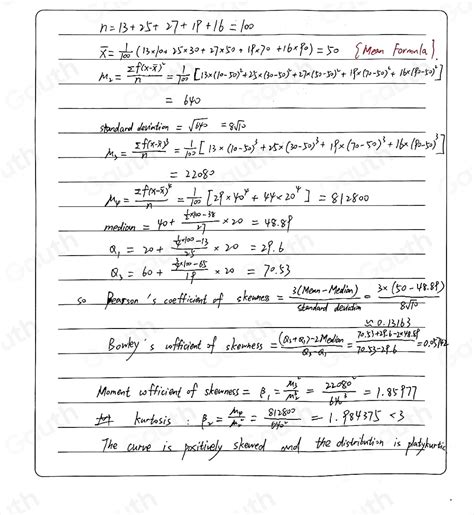 n = 13 + 25 + 27 + 19 + 16 = 100
x̄ = 1/100 (13×10 + 25×30 + 27×50 + 19×70 + 16×90) = 50 {Mean Formula}
M₂ = Σf(x-x̄)²/n = 1/100 [13×(10-50)² + 25×(30-50)² + 27×(50-50)² + 19×(70-50)² + 16×(90-50)²]
= 640
standard deviation = √640 = 8√10
M₃ = Σf(x-x̄)³/n = 1/100 [13×(10-50)³ + 25×(30-50)³ + 19×(70-50)³ + 16×(90-50)³]
= 22080
M₄ = Σf(x-x̄)⁴/n = 1/100 [29×40⁴ + 44×20⁴] = 812800
median = 40 + (½×100-38)/27 × 20 = 48.89
Q₁ = 20 + (¼×100-13)/25 × 20 = 29.6
Q₃ = 60 + (¾×100-65)/19 × 20 = 70.53
so Pearson's coefficient of skewness = 3(Mean-Median)/standard deviation = 3×(50-48.89)/8√10
≈ 0.13163
Bowley's cofficient of skewness = (Q₃+Q₁)-2Median/Q₃-Q₁ = 70.53+29.6-2×48.89/70.53-29.6 =
Moment cofficient of skewness = β₁ = M₃²/M₂³ = 22080²/640³ = 1.85977
kurtosis : β₂ = M₄/M₂² = 812800/640² = 1.984375 < 3
The curve is positively skewed and the distribution is platykurtic